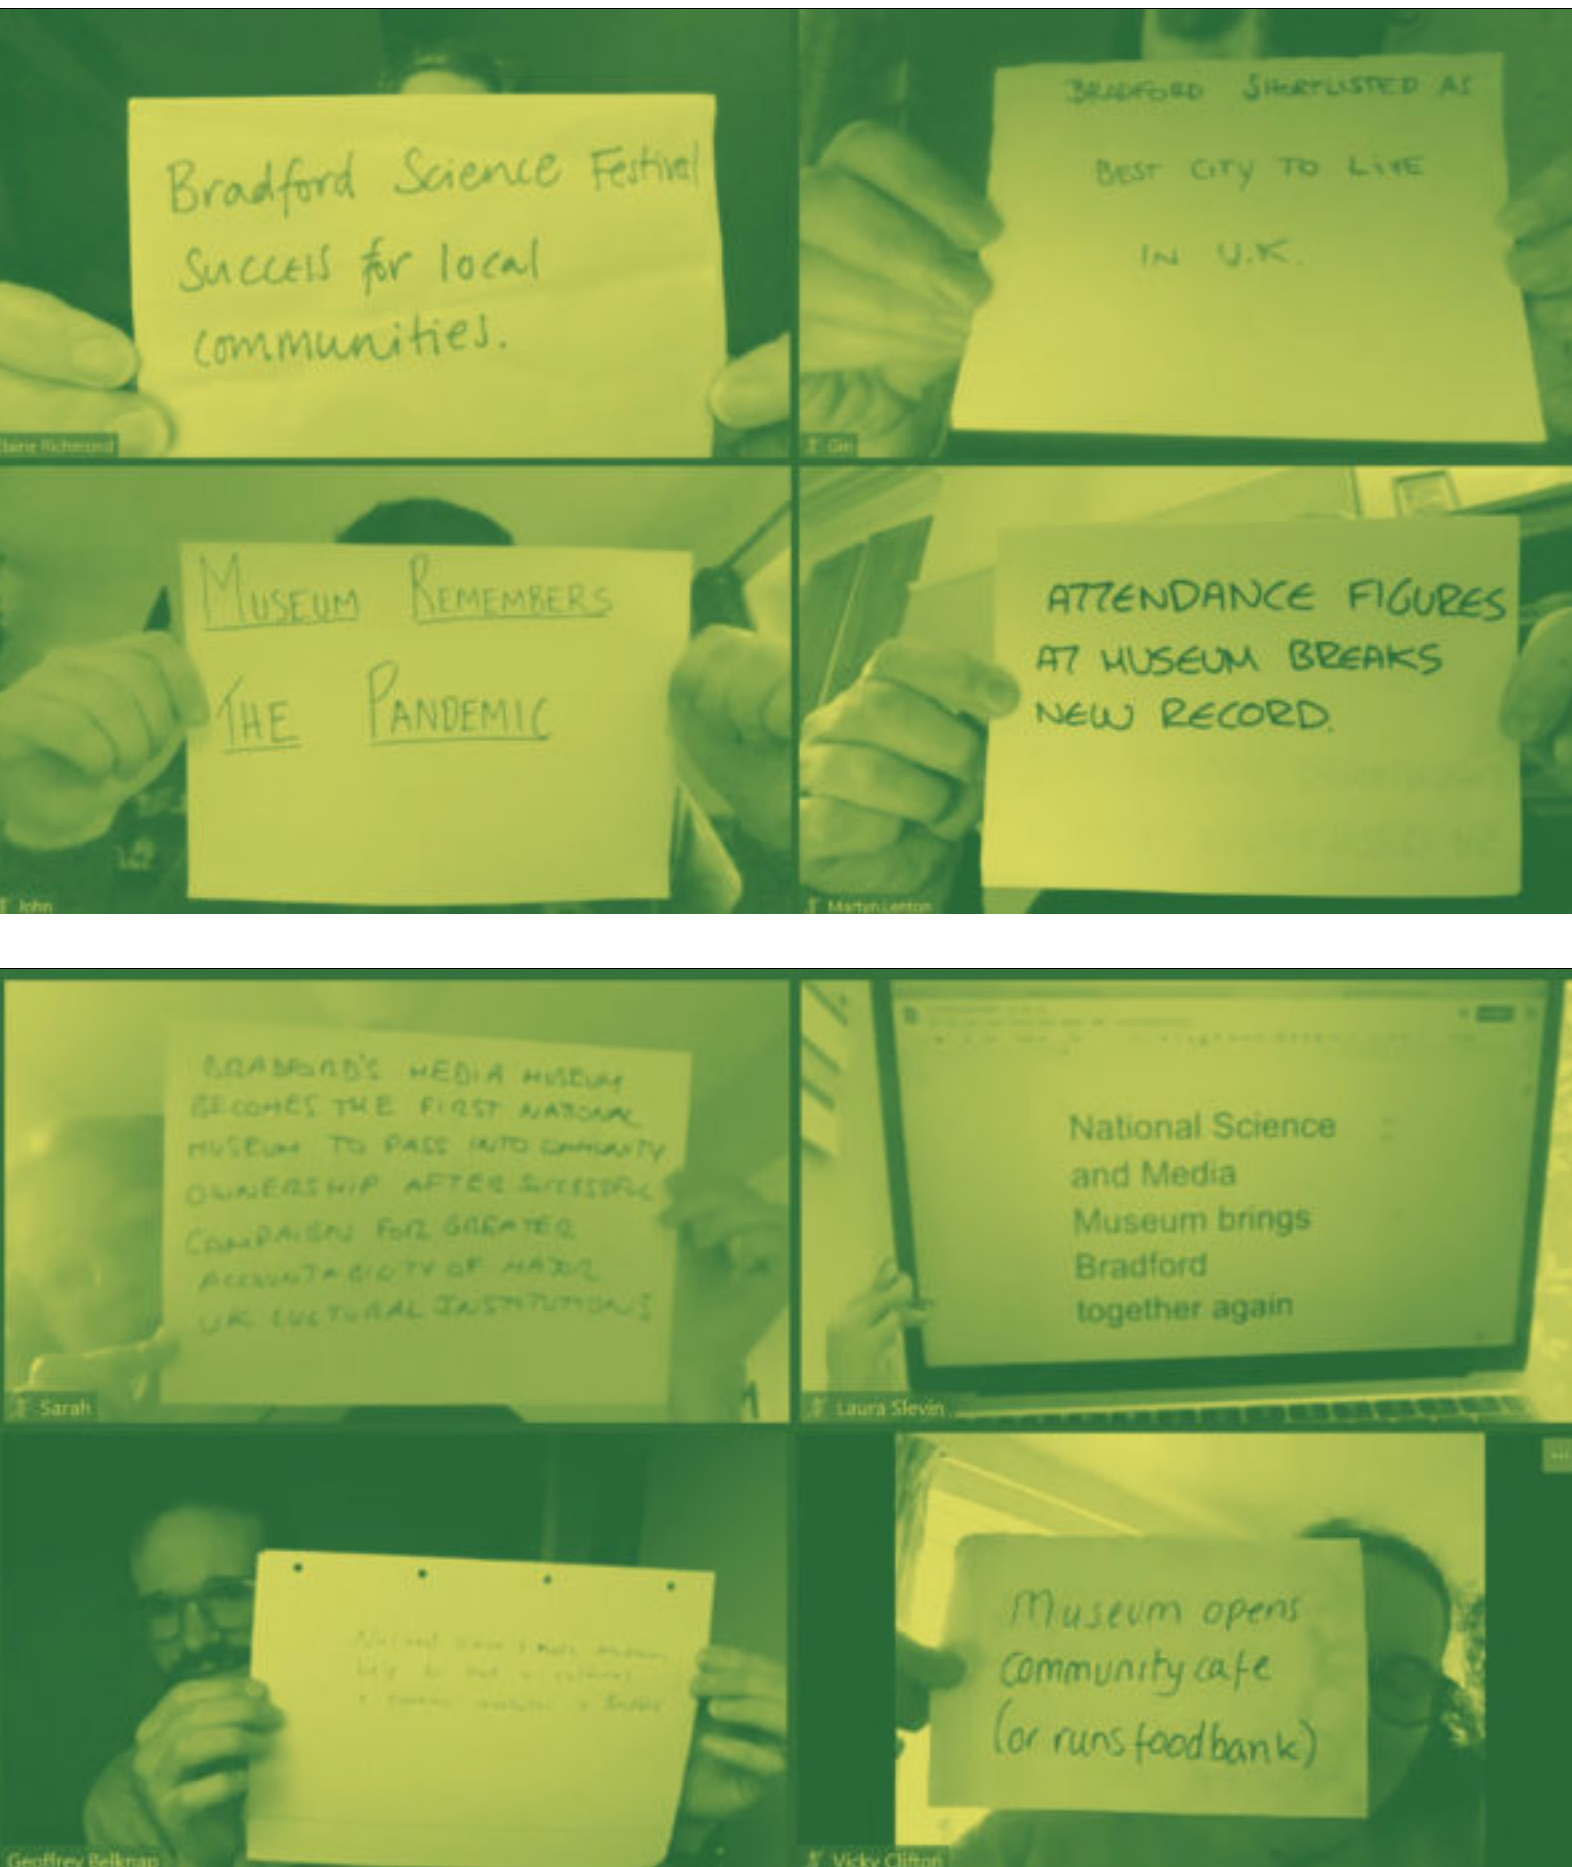 Bradford Science Festival
Success for local
communities.
BRADFORD SHORTLISTED AS
BEST CITY TO LIVE
IN U.K.
Gin
MUSEUM REMEMBERS
THE PANDEMIC
John
ATTENDANCE FIGURES
AT MUSEUM BREAKS
NEW RECORD.
Martyn Lenton
BRADFORD'S MEDIA MUSEUM
BECOMES THE FIRST NATIONAL
MUSEUM TO PASS INTO COMMUNITY
OWNERSHIP AFTER SUCCESSFUL
CAMPAIGN FOR GREATER
ACCOUNTABILITY OF MAJOR
UK CULTURAL INSTITUTIONS
Sarah
National Science
and Media
Museum brings
Bradford
together again
Laura Slevin
Geoffrey Belknap
Museum opens
community cafe
(or runs foodbank)
Vicky Clifton